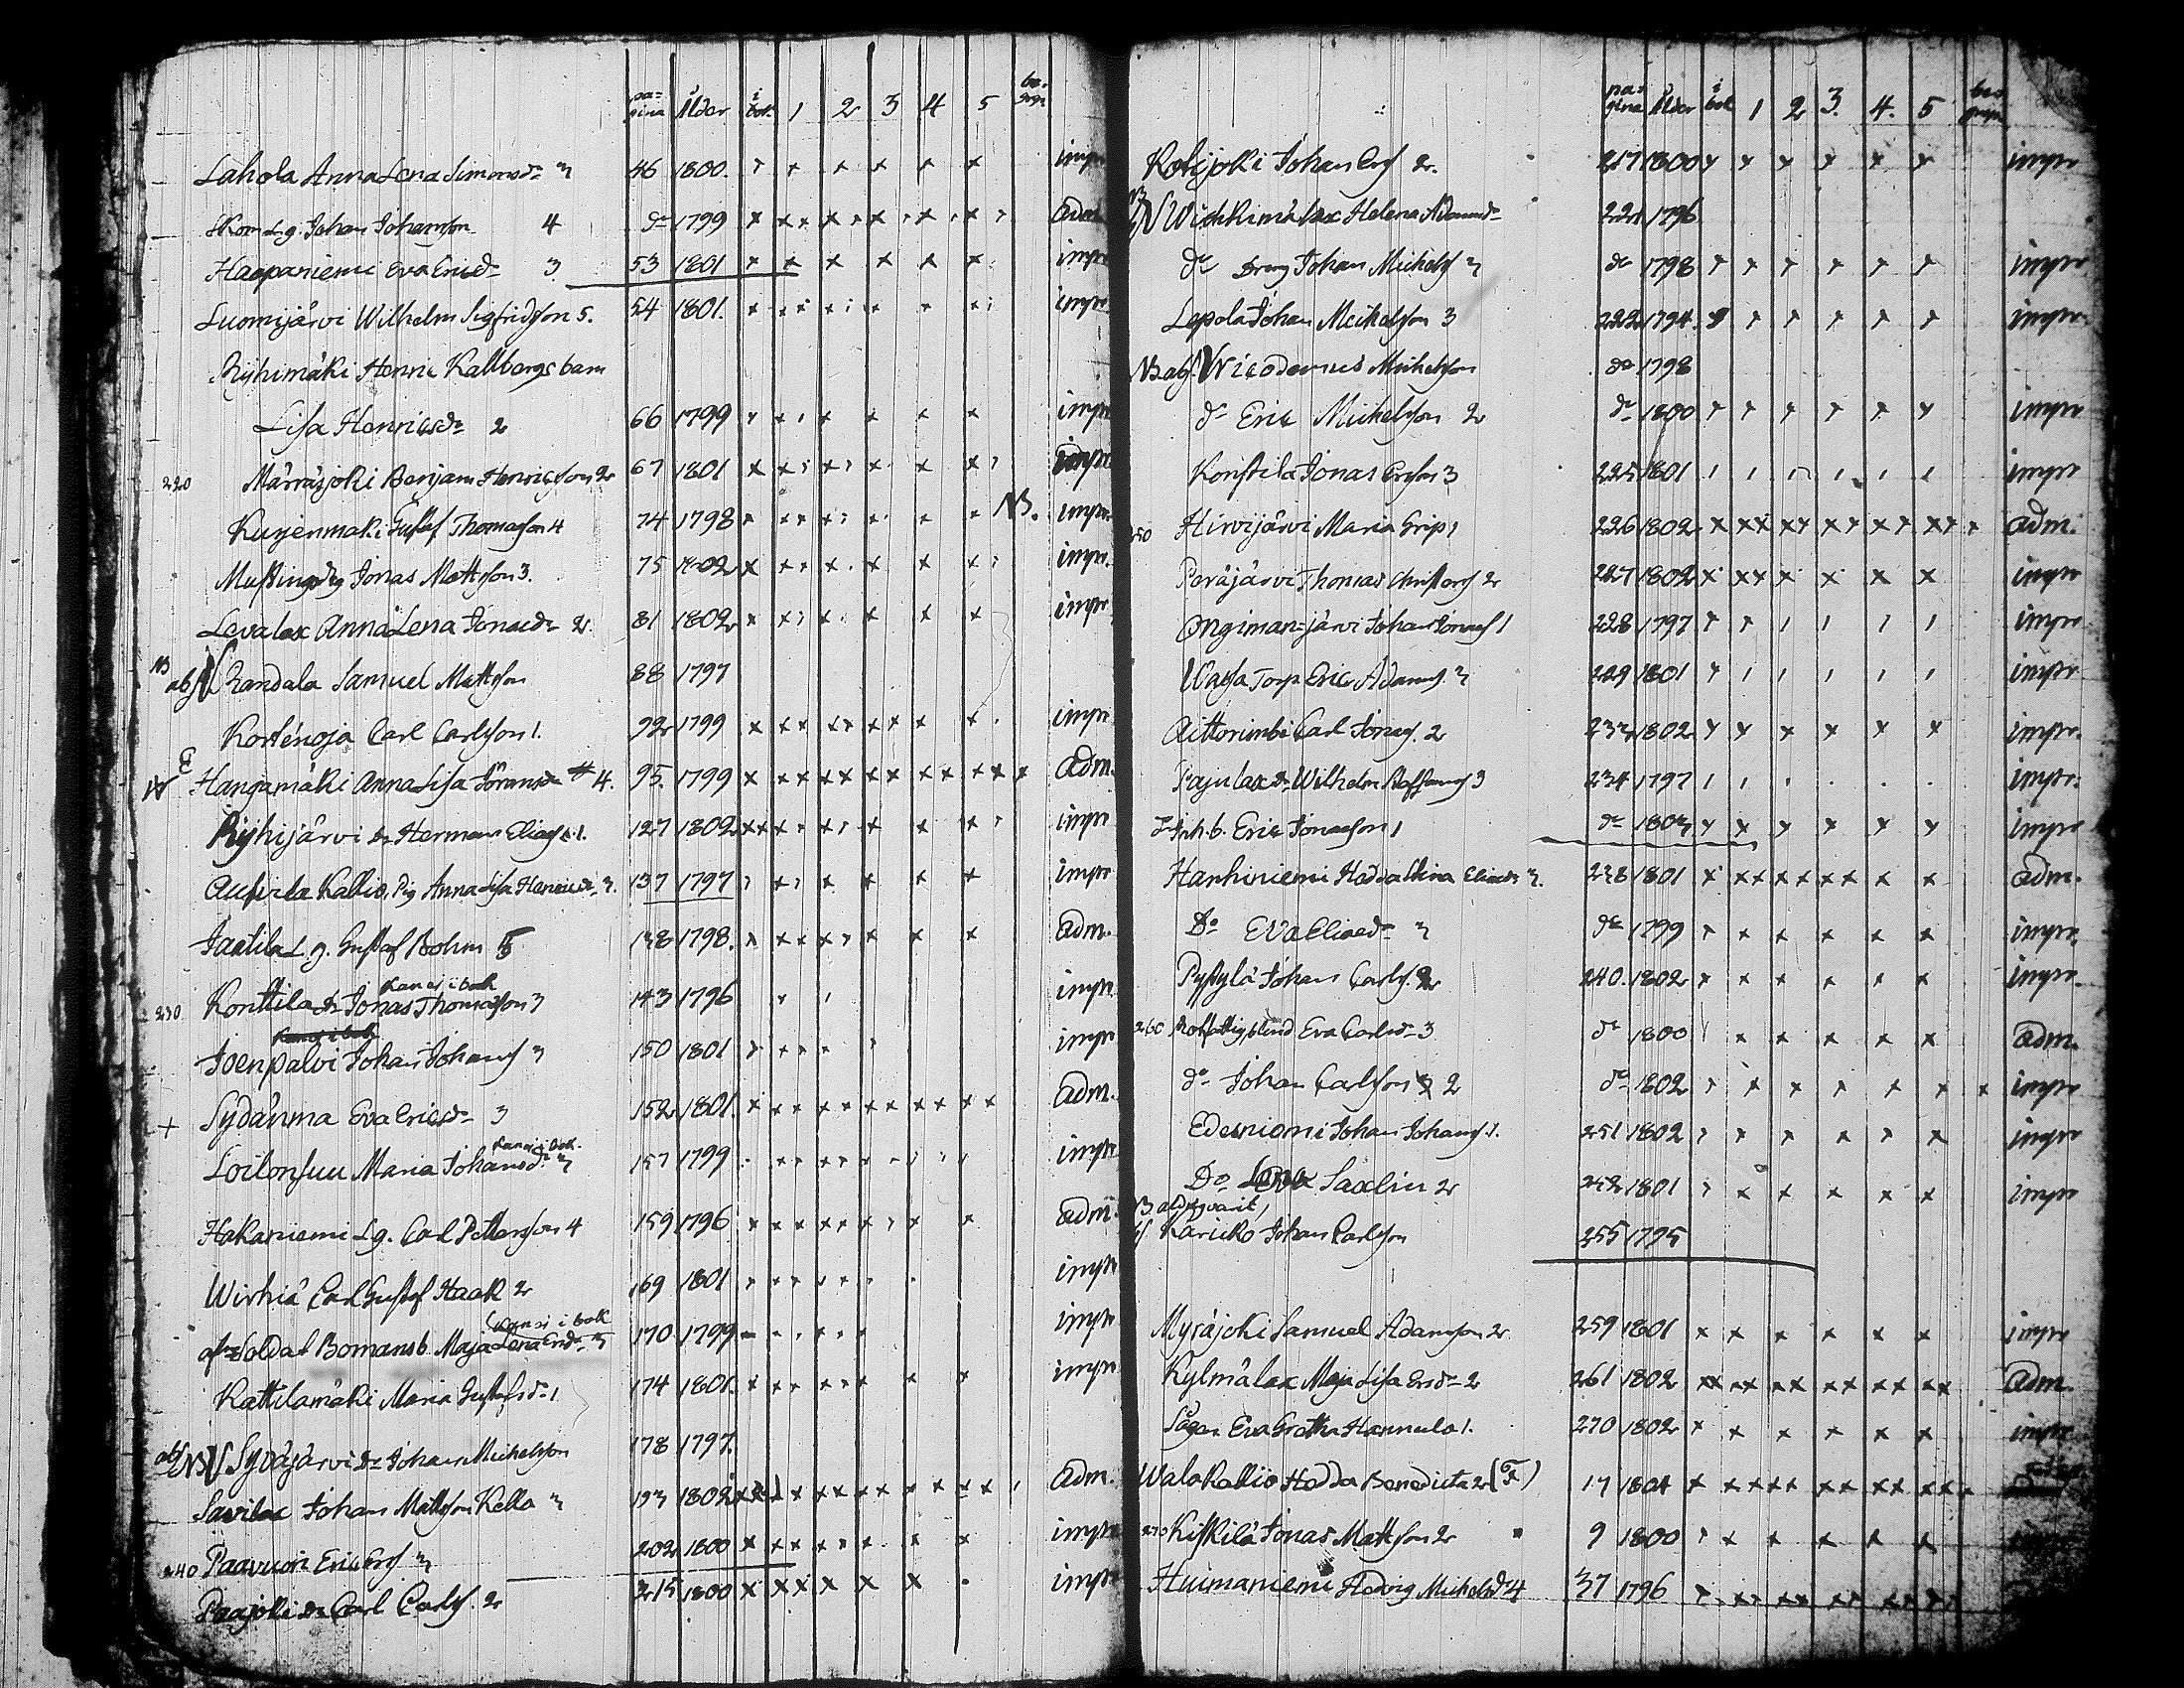 pa= gina Ålder i bok. 1 2 3 4 5 be- grip
Lahola Anna Lena Simonsdr 3 46 1800. impr
Skom Lg. Johan Johansson 4 dr 1799 adm
Haapaniemi Eva Ericsdr 3 53 1801 impr
Luomijärvi Wilhelm Sigfridsson 5. 54 1801. impr
Ryhimäki Henric Kallbergs barn
Lisa Henricsdr 2 66 1799 impr
220 Märräsjoki Benjam Henricsson 2 67 1801 impr
Kujenmäki Gustaf Thomasson 4 74 1798 NB. impr.
Jonas Mattsson 3. 75 1802 impr.
Levalax Anna Lena Jonaedr 2. 81 1802 impr
NB abs Randala Samuel Mattsson 88 1797
Kortenoja Carl Carlsson 1. 92 1799 impr
E Hangamäki Anna Lisa 4. 95. 1799 Adm.
Ryhijärvi Dr Herman Eliass. 1. 127 1802 impr
Kallio, Pig Anna Lisa Henricsdr 3. 137 1797 impr
Jaatila L. g. Gustaf Bohm 5 138 1798. adm.
kan ej i bok
230 Konttila dr Jonas Thomasson 3 143 1796 impr.
Joenpalvi Johan Johanss 3 150 1801 impr
+ Sydänma Eva Ericsdr 3 152 1801. Adm.
kan ej i bok.
Loilonsuu Maria Johansdr 3 157 1799 impr
Hakaniemi Lg. Carl Pettersson 4 159 1796 adm.
Wirkiä Carl Gustaf Haak 2 169 1801 impr
kan ej i bok
Soldat Bomans b. Maja Lena Ersdr 3 170 1799 impr
Kattilamäki Maria Gustafsdr 1 174 1801. impr
abs NB Syväjärvi Dr Johan Michelsson 178 1797.
Savilax Johan Mattsson Kella 3 193 1802 Adm.
240 Paavuori Eric Erss 3 202 1800 impr
Paajoki Dr Carl Carlss. 2 215 1800 impr
pa= gina Ålder i bok 1 2 3. 4. 5 be- grip
Kohijoki Johan Erss 2. 217 1800 impr
NB Wiskkimälax Helena Adamsdr 221 1796
dr Dreng Johan Michelss 3 dr 1798 impr
Lepola Johan Michelsson 3 222 1794. impr.
NB abs. Nicodemus Michelsson dr 1798
dr Eric Michelsson 2 dr 1800 impr
Konttila Jonas Ersson 3 225 1801 impr
250 Hirvijärvi Maria Grip 1 226 1802 adm.
Peräjärvi Thomas Christerss 2 227 1802 impr
Ongimanjärvi Johan Jonass 1 228 1797 impr
Waysa Torp Eric Adams. 3 229 1801 impr
Aittorimbi Carl Jonass. 2 233 1802 impr.
Pajulax dr Wilhelm Staffanss 3 234 1797 impr:
Inh. b. Eric Jonasson 1 dr 1803 impr
Hanhiniemi Hedda Stina Eliaedr 3. 238 1801 adm.
Do Eva Eliaedr 3 dr 1799 impr.
Pyssylä Johan Carlss. 2 240. 1802 impr.
260 Rotfattig, blind Eva Carlsdr 3 dr 1800 adm.
dr Johan Carlsson 2 dr 1802 impr
Edesniemi Johan Johanss 1. 251 1802 impr
Do Saxlin 2 252 1801 impr
NB aldrig varit
Karicko Johan Carlsson 255 1795
Myräjoki Samuel Adamsson 2. 259 1801 impr
Kylmälax Maja Lisa Ersdr 2 261 1802 Adm.
Sågen Eva Greta Hannula 1. 270 1802 impr
Walakallio Hedda Benedicta 2 (F) 17 1804
270 Kiskilä Jonas Mattsson 2 9 1800 impr
Huimaniemi Hedvig Michelsdr 4 37 1796